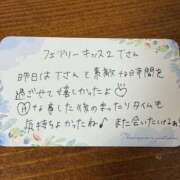 フェアリーキッス2 Tさん
昨日はTさんと素敵な時間を
過ごせて嬉しかったよ♡
Hな事した後のまったりタイムも
気持ちよかったね♪
また会いたいけるぉ!